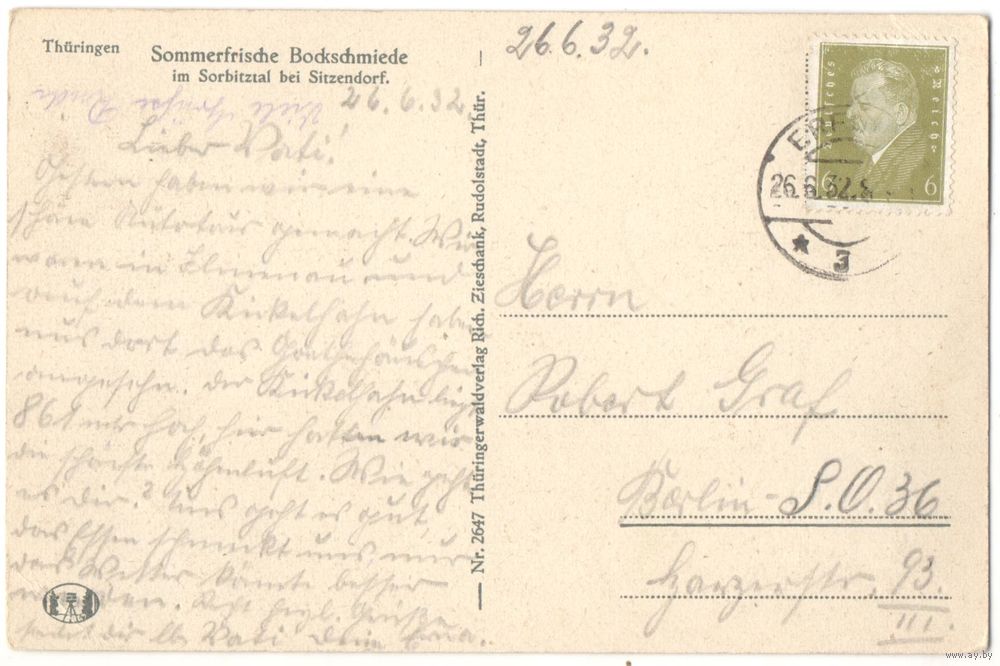 Thüringen
Sommerfrische Bockschmiede
im Sorbitztal bei Sitzendorf.
Viele Grüße
26.6.32
Lieber Vati!
Gestern haben wir eine
schöne gemacht. Wir
waren in Ilmenau und
auf dem Kickelhahn haben
uns dort das Goethehäuschen
angesehn. Der Kickelhahn liegt
861 mtr hoch, hier hatten wir
die schönste Höhenluft. Wie geht
es dir? Uns geht es gut,
das Essen schmeckt uns, nur
das Wetter könnte besser
werden. Recht herzl. Grüße
sendet dir lb. Vati deine
Nr. 2647 Thüringerwaldverlag Rich. Zieschank, Rudolstadt, Thür.
26.6.32.
Deutsches Reich
6 6
26.6.32.8
* 3
Herrn
Robert Graf
Berlin-S.O.36
Harzerstr. 93.
III.
www.ay.by